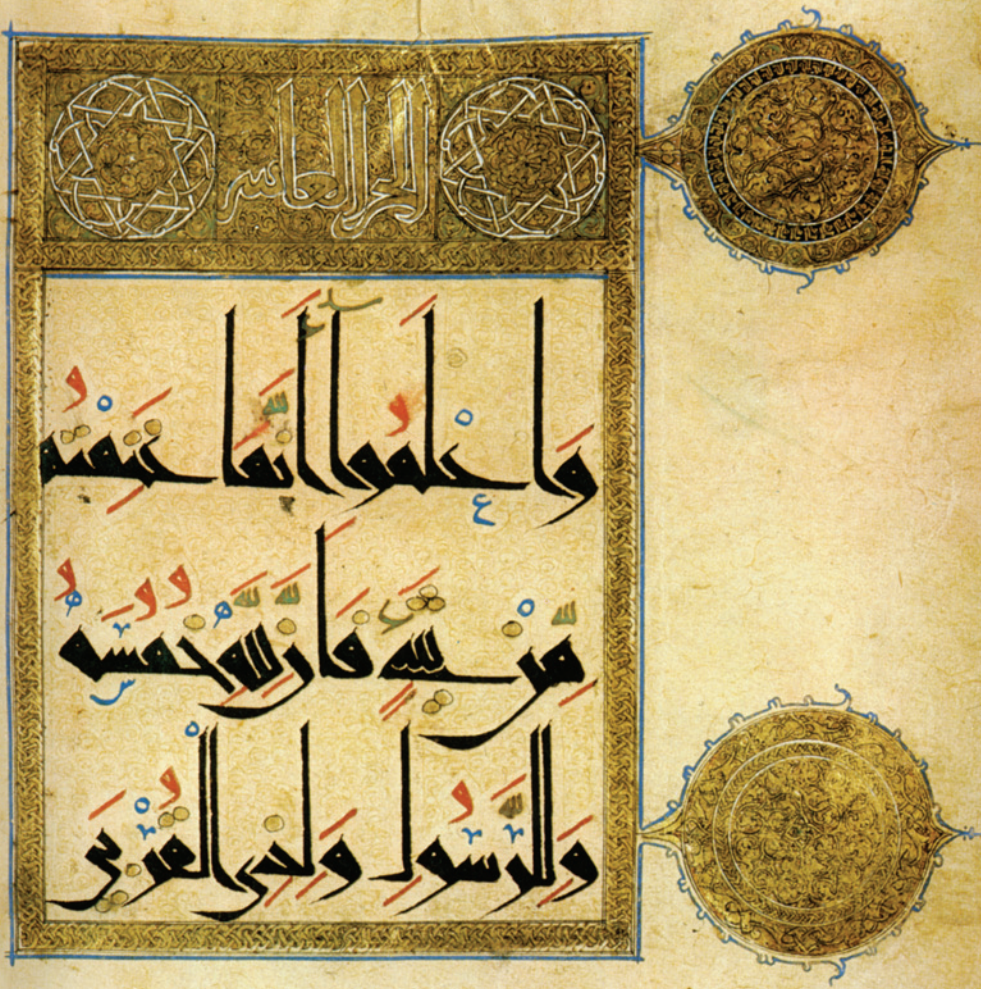 الجزء العاشر
وَاعْلَمُوا أَنَّمَا غَنِمْتُمْ
مِنْ شَيْءٍ فَأَنَّ لِلَّهِ خُمُسَهُ
وَلِلرَّسُولِ وَلِذِي الْقُرْبَى